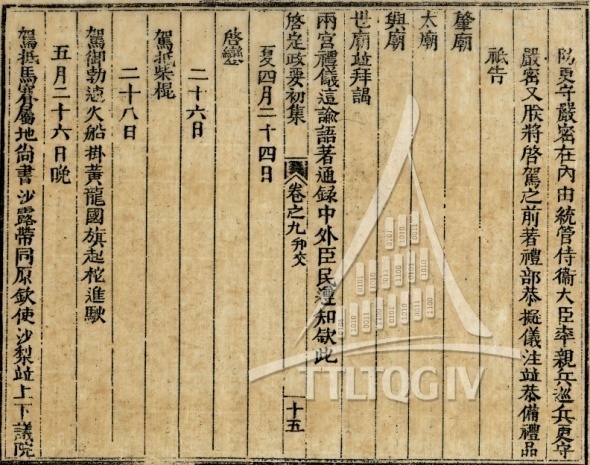 更守嚴密在內由統管侍衞大臣率親兵巡兵更守
嚴密又朕將啓駕之前著禮部恭擬儀注竝恭備禮品
祗告
肇廟
太廟
興廟
世廟竝拜謁
兩宮禮儀這諭語著通錄中外臣民遵知欽此
啓定政要初集 卷之九 邦交 十五
夏四月二十四日
啓鑾
二十六日
駕抵柴棍
二十八日
駕御勃遠火船掛黃龍國旗起椗進駛
五月二十六日晚
駕抵馬賽屬地尙書沙露帶同原欽使沙梨竝上下議院
TTLTQG IV